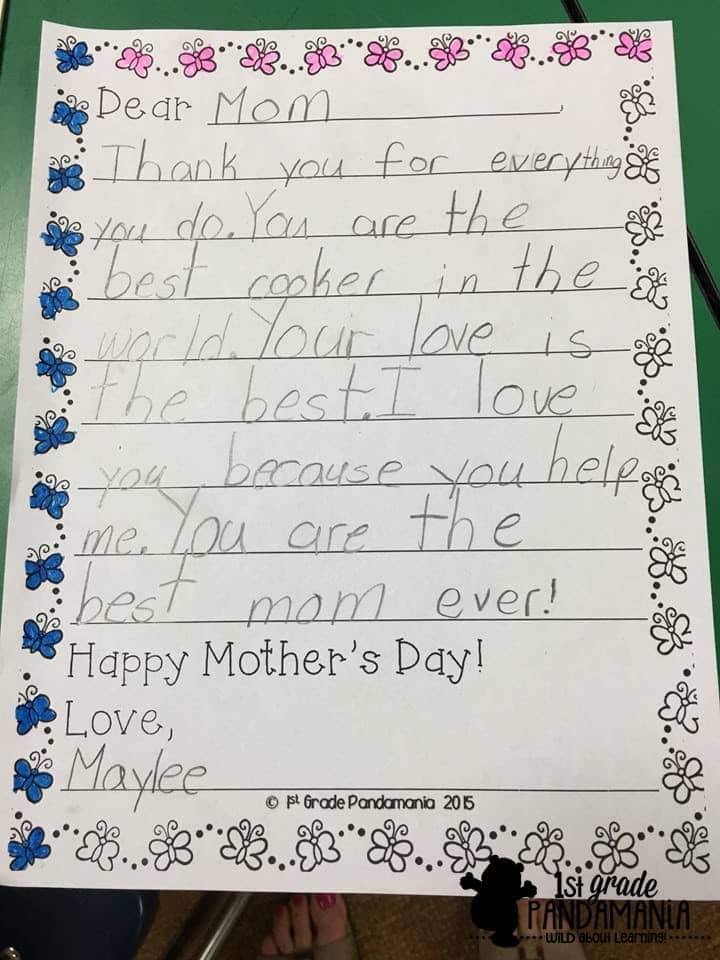 Dear Mom,
Thank you for everything
you do. You are the
best cooker in the
world. Your love is
the best. I love
you because you help
me. You are the
best mom ever!
Happy Mother's Day!
Love,
Maylee
© 1st Grade Pandamania 2015
1st grade
PANDAMANIA
WILD about Learning!